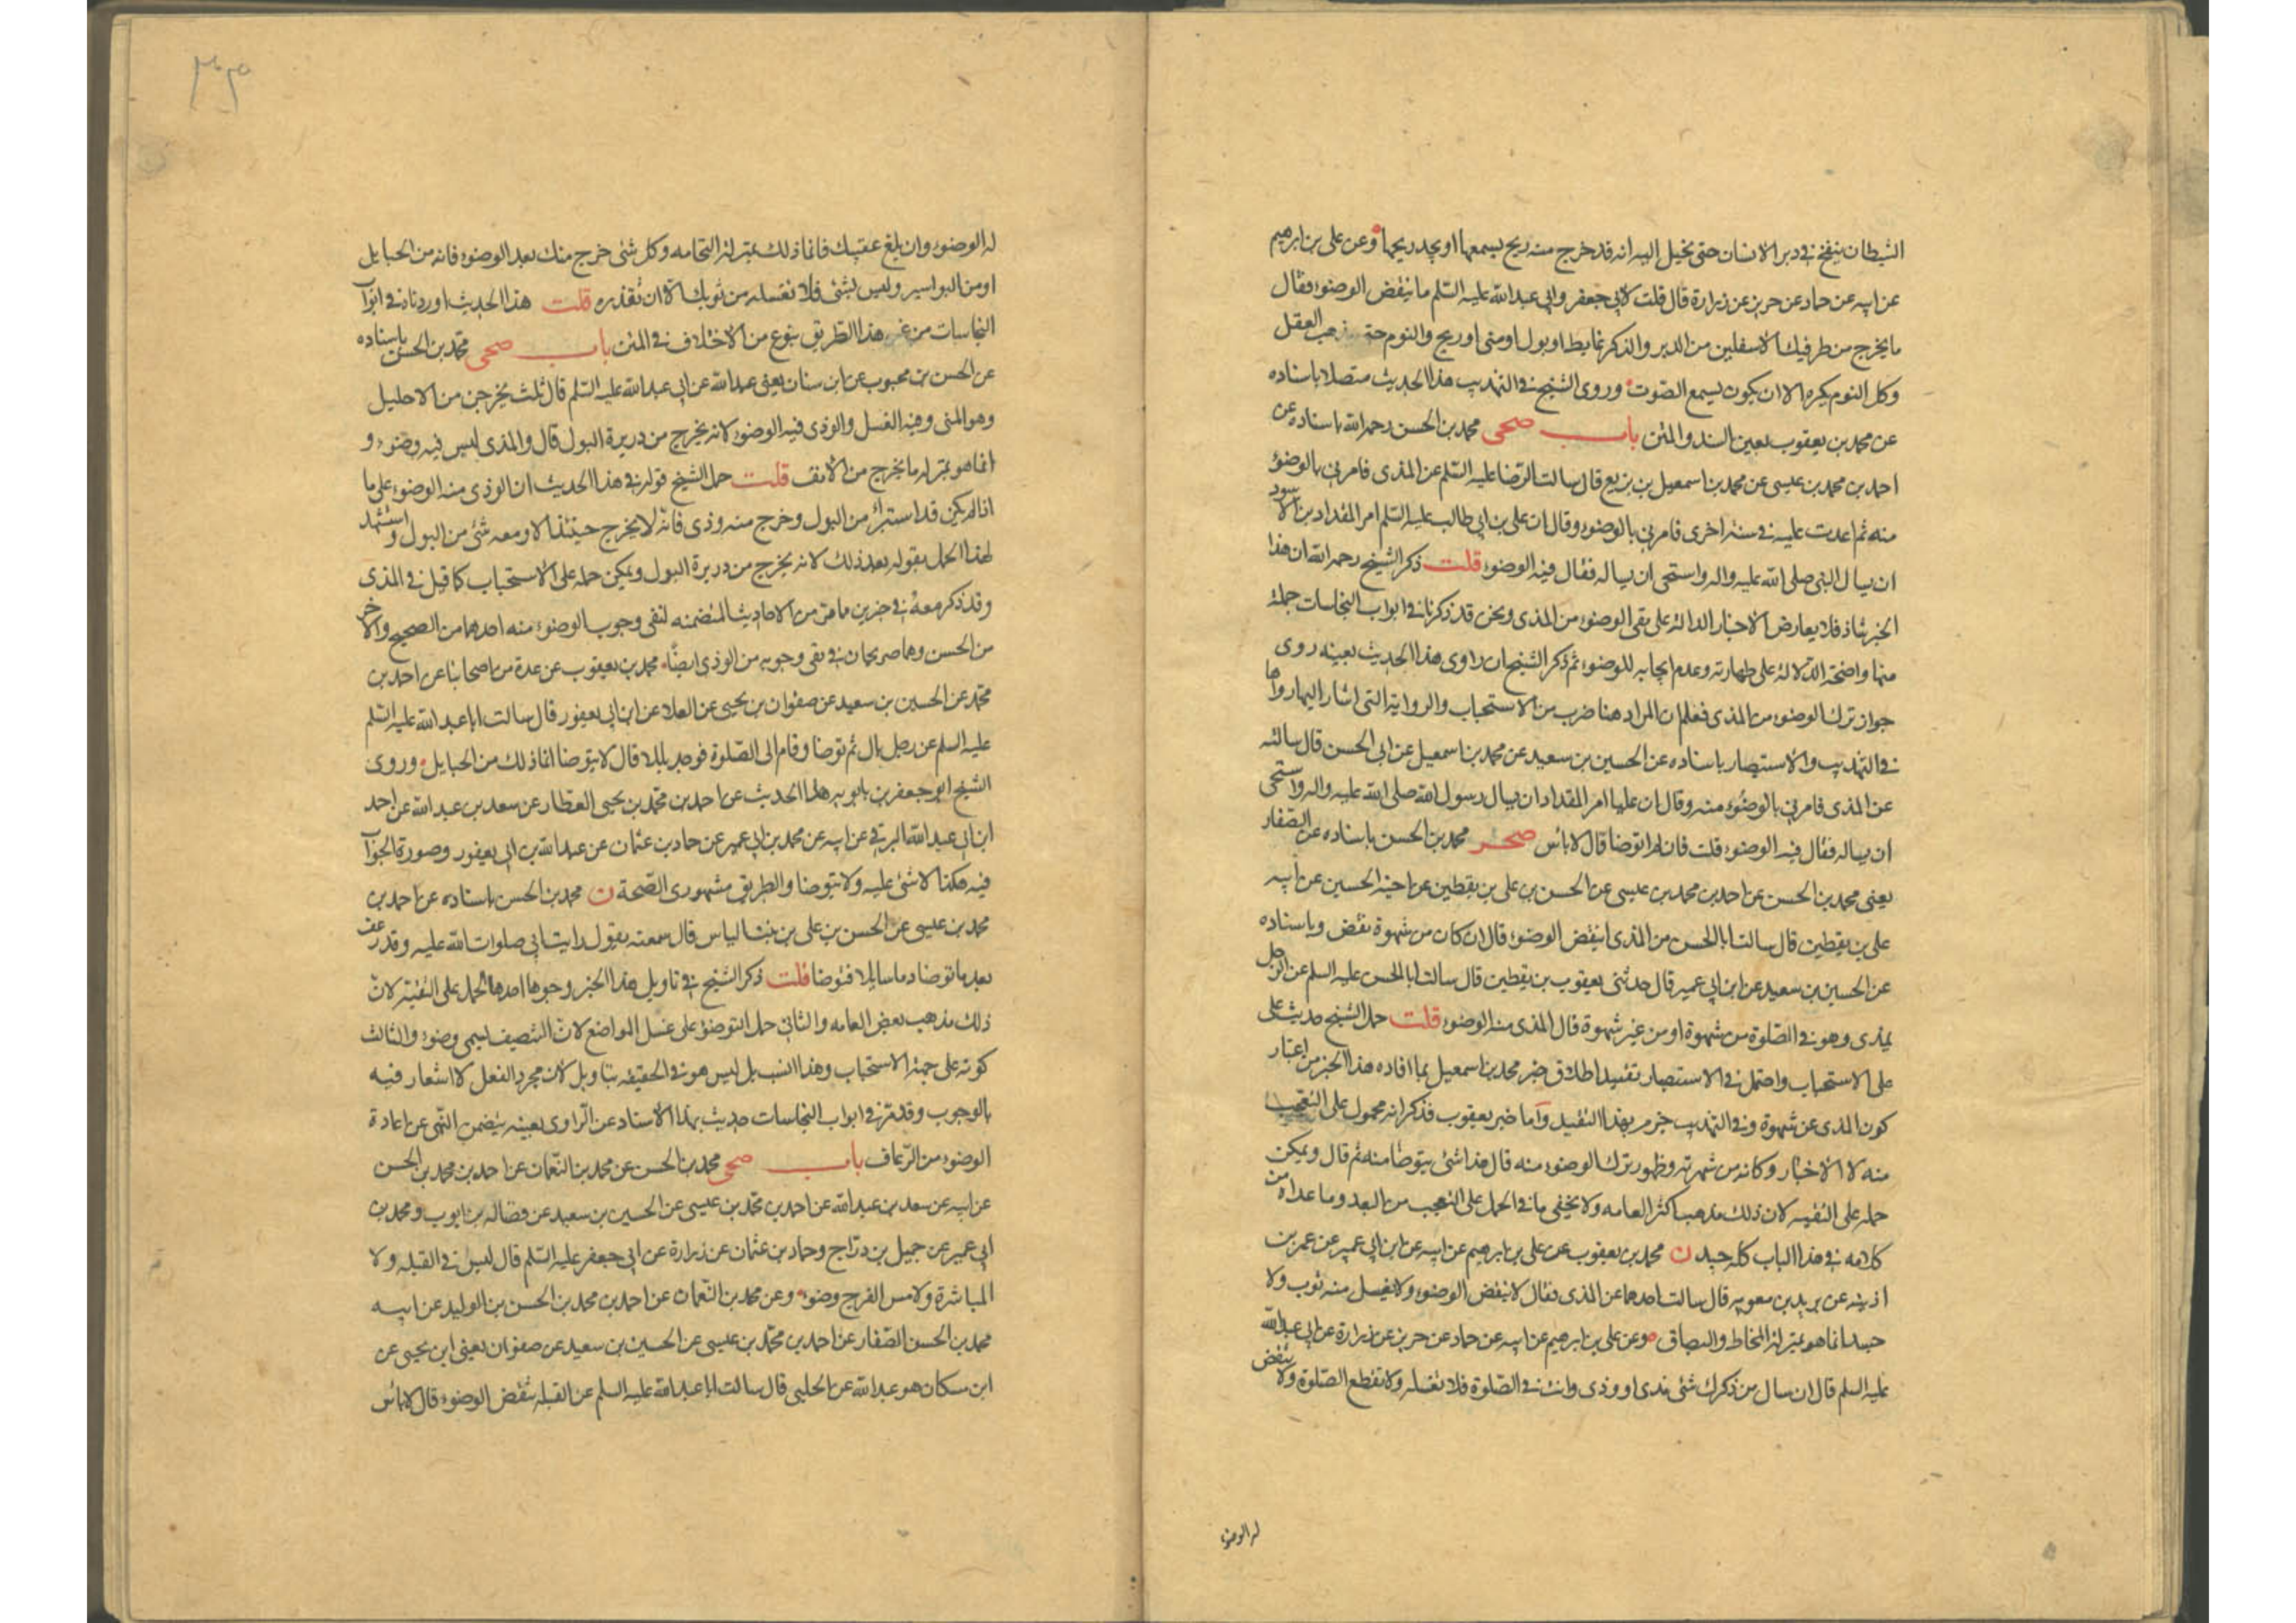 الشيطان ينفخ في دبر الانسان حتى يخيل اليه انه قد خرج منه ريح يسمعها او يجد ريحها وعن علي بن ابرهيم
عن ابيه عن حماد عن حريز عن زرارة قال قلت لابي جعفر وابي عبد الله عليه السّلم ما ينقض الوضوء فقال
ما يخرج من طرفيك الاسفلين من الدبر والذكر غايط او بول او منى او ريح والنوم حتى يذهب العقل
وكل النوم يكره الا ان يكون يسمع الصّوت وروى الشيخ في التهذيب هذا الحديث متصلا باسناده
عن محمد بن يعقوب بعين السند والمتن باب صحى محمد بن الحسن رحمه الله باسناده عن
احمد بن محمد بن عيسى عن محمد بن اسمعيل بن بزيع قال سالت الرّضا عليه السّلم عن المذى فامرنى بالوضوء
منه ثم اعدت عليه في سنة اخرى فامرني بالوضوء وقال ان على بن ابي طالب عليه السّلم امر المقداد بن الاسود
ان يسال النبى صلى الله عليه واله واستحى ان يساله فقال فيه الوضوء قلت ذكر الشيخ رحمه الله ان هذا
الخبر شاذ فلا يعارض الاخبار الدالة على نفى الوضوء من المذى ونحن قد ذكرنا في ابواب النجاسات جملة
منها واضحة الدّلالة على طهارته وعدم ايجابه للوضوء ثم ذكر الشيخ ان راوى هذا الحديث بعينه روى
جواز ترك الوضوء من المذى فعلم ان المراد هنا ضرب من الاستحباب والرواية التى اشار اليها رواها
في التهذيب والاستبصار باسناده عن الحسين بن سعيد عن محمد بن اسمعيل عن ابى الحسن قال سالته
عن المذى فامرني بالوضوء منه وقال ان عليا امر المقداد ان يسال رسول الله صلى الله عليه واله واستحى
ان يساله فقال فيه الوضوء قلت فان لم اتوضا قال لاباس صحر محمد بن الحسن باسناده عن الصّفار
يعنى محمد بن الحسن عن احمد بن محمد بن عيسى عن الحسن بن على بن يقطين عن اخيه الحسين عن ابيه
على بن يقطين قال سالت ابا الحسن من المذى اينقض الوضوء قال ان كان من شهوة نقض وباسناده
عن الحسين بن سعيد عن ابن ابي عمير قال حدثنى يعقوب بن يقطين قال سالت ابا الحسن عليه السلم عن الرّجل
يمذى وهو في الصّلوة من شهوة او من غير شهوة قال المذى منه الوضوء قلت حمل الشيخ حديث على
على الاستحباب واحتمل في الاستبصار تقييد اطلاق خبر محمد بن اسمعيل بما افاده هذا الخبر من اعتبار
كون المذى عن شهوة وفي التهذيب جزم بهذا التقييد وامّا خبر يعقوب فذكر انه محمول على التعجب
منه لا الاخبار وكانه من شهرته وظهور ترك الوضوء منه قال هذا شئ يتوضا منه ثم قال ويمكن
حمله على التقيه لان ذلك مذهب اكثر العامه ولا يخفى ما في الحمل على التعجب من البعد وما عداه من
كلامه في هذا الباب كله جيد ن محمد بن يعقوب عن على بن ابرهيم عن ابيه عن ابن ابي عمير عن عمر بن
اذينه عن بريد بن معويه قال سالت احدهما عن المذى فقال لا ينقض الوضوء ولا يغسل منه ثوب ولا
جسد انما هو بمنزلة المخاط والبصاق وعن على بن ابرهيم عن ابيه عن حماد عن حريز عن زرارة عن ابي عبد الله
عليه السلم قال ان سال من ذكرك شئ مذى او وذى وانت في الصّلوة فلا تغسله ولا تقطع الصّلوة ولا ينقض
له الوضوء
له الوضوء وان بلغ عقبيك فانما ذلك بمنزلة النخامه وكل شئ خرج منك بعد الوضوء فانه من الحبايل
او من البواسير وليس بشئ فلا تغسله من ثوبك الا ان تقذره قلت هذا الحديث اوردناه في ابواب
النجاسات من غير هذا الطريق بنوع من الاختلاف في المتن باب صحى محمّد بن الحسن باسناده
عن الحسن بن محبوب عن ابن سنان يعنى عبد الله عن ابي عبد الله عليه السّلم قال ثلث يخرجن من الاحليل
وهو المنى وفيه الغسل والوذى فيه الوضوء لانه يخرج من دريرة البول قال والمذى ليس فيه وضوء و
انما هو بمنزلة ما يخرج من الانف قلت حمل الشيخ قوله في هذا الحديث ان الوذى منه الوضوء على ما
اذا لم يكن قد استبرئ من البول وخرج منه وذى فانّه لا يخرج حينئذ الا ومعه شئ من البول واستشهد
لهذا الحمل بقوله بعد ذلك لانه يخرج من دريرة البول ويمكن حمله على الاستحباب كما قيل في المذى
وقد ذكر معه في خبرين مما مرّ من الاحاديث المتضمنه لنفى وجوب الوضوء منه احدهما من الصحيح والاخر
من الحسن وهما صريحان في نفى وجوبه من الوذى ايضًا محمد بن يعقوب عن عدة من اصحابنا عن احمد بن
محمّد عن الحسين بن سعيد عن صفوان بن يحيى عن العلا عن ابن ابي يعفور قال سالت ابا عبد الله عليه السّلم
عليه السلم عن رجل بال ثم توضا وقام الى الصّلوة فوجد بللا قال لا يتوضا انما ذلك من الحبايل وروى
الشيخ ابو جعفر بن بابويه هذا الحديث عن احمد بن محمّد بن يحيى العطار عن سعد بن عبد الله عن احمد
ابن ابي عبد الله البرقي عن ابيه عن محمد بن ابي عمير عن حماد بن عثمان عن عبد الله بن ابى يعفور وصورة الجواب
فيه هكذا لا شئ عليه ولا يتوضا والطريق مشهورى الصّحة ن محمد بن الحسن باسناده عن احمد بن
محمد بن عيسى عن الحسن بن على بن بنت الياس قال سمعته يقول رايت ابي صلوات الله عليه وقد رعف
بعد ما توضا دما سايلا فتوضا قلت ذكر الشيخ في تاويل هذا الخبر وجوها احدها الحمل على التقيّة لانّ
ذلك مذهب بعض العامه والثاني حمل التوضؤ على غسل المواضع لانّ التنصيف يسمى وضوء والثالث
كونه على جهة الاستحباب وهذا انسب بل ليس هو في الحقيقه بتاويل لان مجرد الفعل لا اشعار فيه
بالوجوب وقد مرّ في ابواب النجاسات حديث بهذا الاسناد عن الرّاوى بعينه يتضمن النّهى عن اعادة
الوضوء من الرّعاف باب صحى محمد بن الحسن عن محمد بن النّعمان عن احمد بن محمد بن الحسن
عن ابيه عن سعد بن عبد الله عن احمد بن محمّد بن عيسى عن الحسين بن سعيد عن فضاله بن ايوب ومحمد بن
ابي عمير عن جميل بن درّاج وحماد بن عثمان عن زرارة عن ابي جعفر عليه السّلم قال ليس في القبله ولا
المباشرة ولا مس الفرج وضوء وعن محمد بن النّعمان عن احمد بن محمد بن الحسن بن الوليد عن ابيه
محمد بن الحسن الصّفار عن احمد بن محمّد بن عيسى عن الحسين بن سعيد عن صفوان يعنى ابن يحيى عن
ابن مسكان هو عبد الله عن الحلبي قال سالت ابا عبد الله عليه السلم عن القبلة ينقض الوضوء قال لاباس